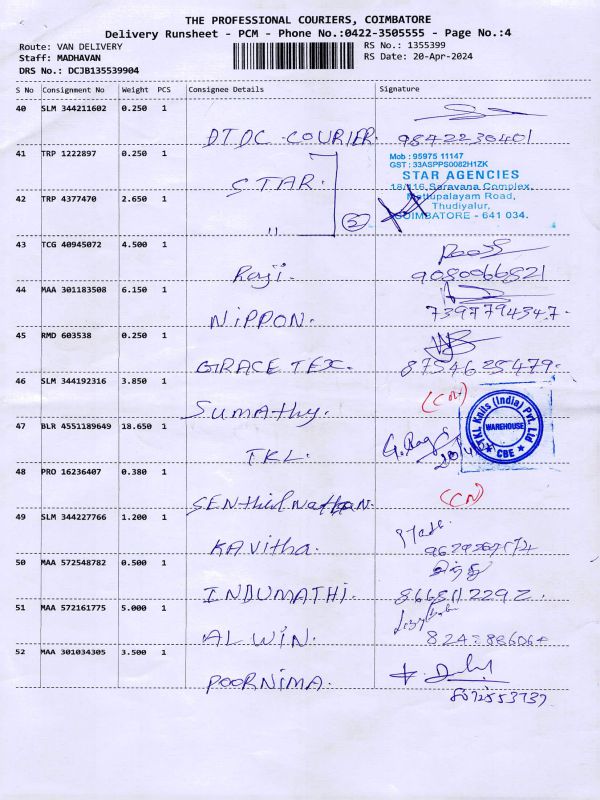 THE PROFESSIONAL COURIERS, COIMBATORE
Delivery Runsheet - PCM - Phone No.:0422-3505555 - Page No.:4
Route: VAN DELIVERY RS No.: 1355399
Staff: MADHAVAN RS Date: 20-Apr-2024
DRS No.: DCJB135539904
S No Consignment No Weight PCS Consignee Details Signature
40 SLM 344211602 0.250 1
DTDC COURIER. 9842230401
41 TRP 1222897 0.250 1
STAR.
Mob : 95975 11147
GST : 33ASPPS0082H1ZK
STAR AGENCIES
18/116, Saravana Complex,
Mettupalayam Road,
Thudiyalur,
COIMBATORE - 641 034.
42 TRP 4377470 2.650 1
"
43 TCG 40945072 4.500 1
Raji. 9080066821
44 MAA 301183508 6.150 1
NIPPON. 7397794347.
45 RMD 603538 0.250 1
GRACE TEX. 8754625479.
46 SLM 344192316 3.850 1
Sumathy. (CN)
47 BLR 4551189649 18.650 1
TKL.
TKL Knits (India) Pvt. Ltd
WAREHOUSE
CBE
48 PRO 16236407 0.380 1
SENthil Nathan. (CN)
49 SLM 344227766 1.200 1
KAVitha.
50 MAA 572548782 0.500 1
இந்து
INDUMATHI. 8668112292.
51 MAA 572161775 5.000 1
ALWIN.
52 MAA 301034305 3.500 1
POORNIMA.
8072553737